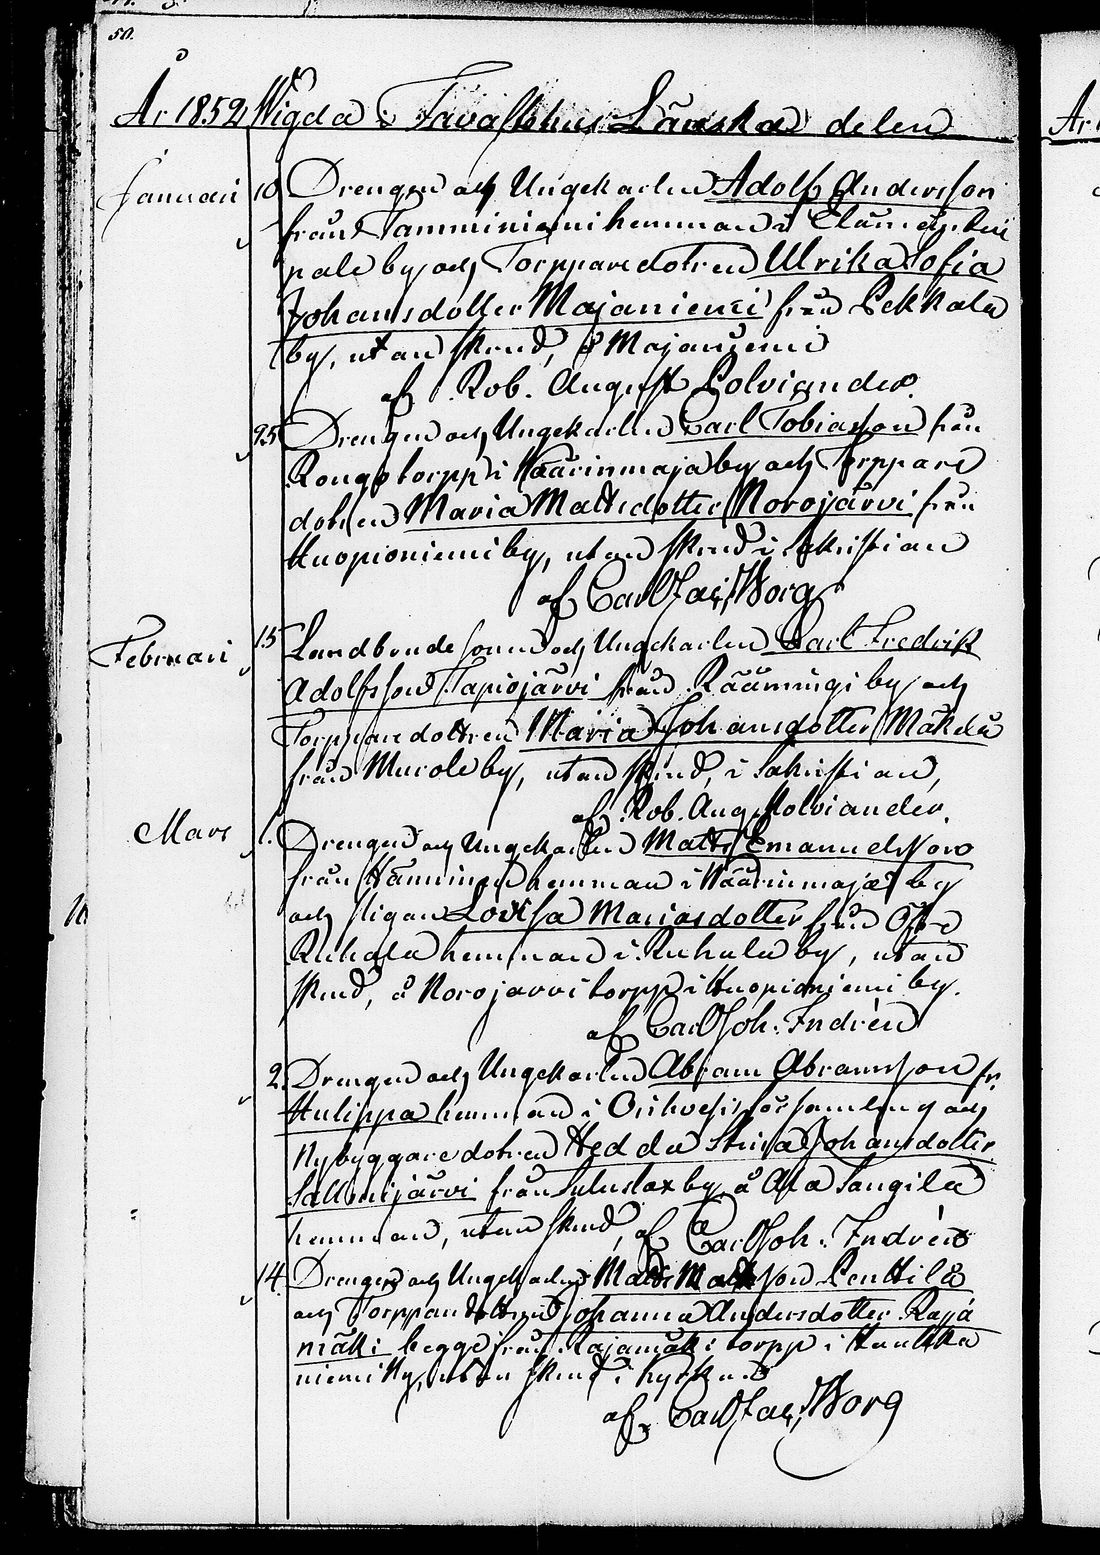 50.
År 1852 Wigda i Tavastehus Länska delen
Januari 10 Drengen och Ungekarlen Adolf Andersson
från Tamminiemi hemman i
pale by och Torpparedotren Ulrika Sofia
Johansdotter Majaniemi från Pekkala
by, utan skrud, å Majaniemi
af Rob. August Polviander.
25 Drengen och Ungekarlen Carl Tobiasson från
Rongo torpp i Wäärinmaja by och Torppare
dotren Maria Mattsdotter Norojärvi från
Huopioniemi by, utan skrud i Sakristian
af Carl Jac. Worg
Februari 15 Landbondesonen och Ungekarlen Carl Fredrik
Adolfsson Tapiojärvi från Rääminngi by och
Torppardottren Maria Johansdotter Mäkelä
från Murole by, utan skrud, i Sakristian,
af Rob. Aug. Polviander.
Mars 1. Drengen och Ungekarlen Matts Emanuel Noro
från Hänninen hemman i Wäärinmaja by
och pigan Lovisa Mariasdotter från Öfre
Ruhala hemman i Ruhala by, utan
skrud, å Norojärvi torpp i Huopioniemi by.
af Carl Joh. Indrén
2. Drengen och Ungekarlen Abram Abramsson fr.
Hulippa hemman i Orihvesi församling och
Nybyggaredotren Hedda Stina Johansdotter
Sallmijärvi från by å Ala Sangila
hemman, utan skrud, af Carl Joh. Indrén
14. Drengen och Ungekarlen Matts Mattsson Penttilä
och Torppardottren Johanna Andersdotter Raja
mäki begge från Rajamäki torpp i Haukka
niemi by, utan skrud i Kyrkan
af Carl Jac. Worg